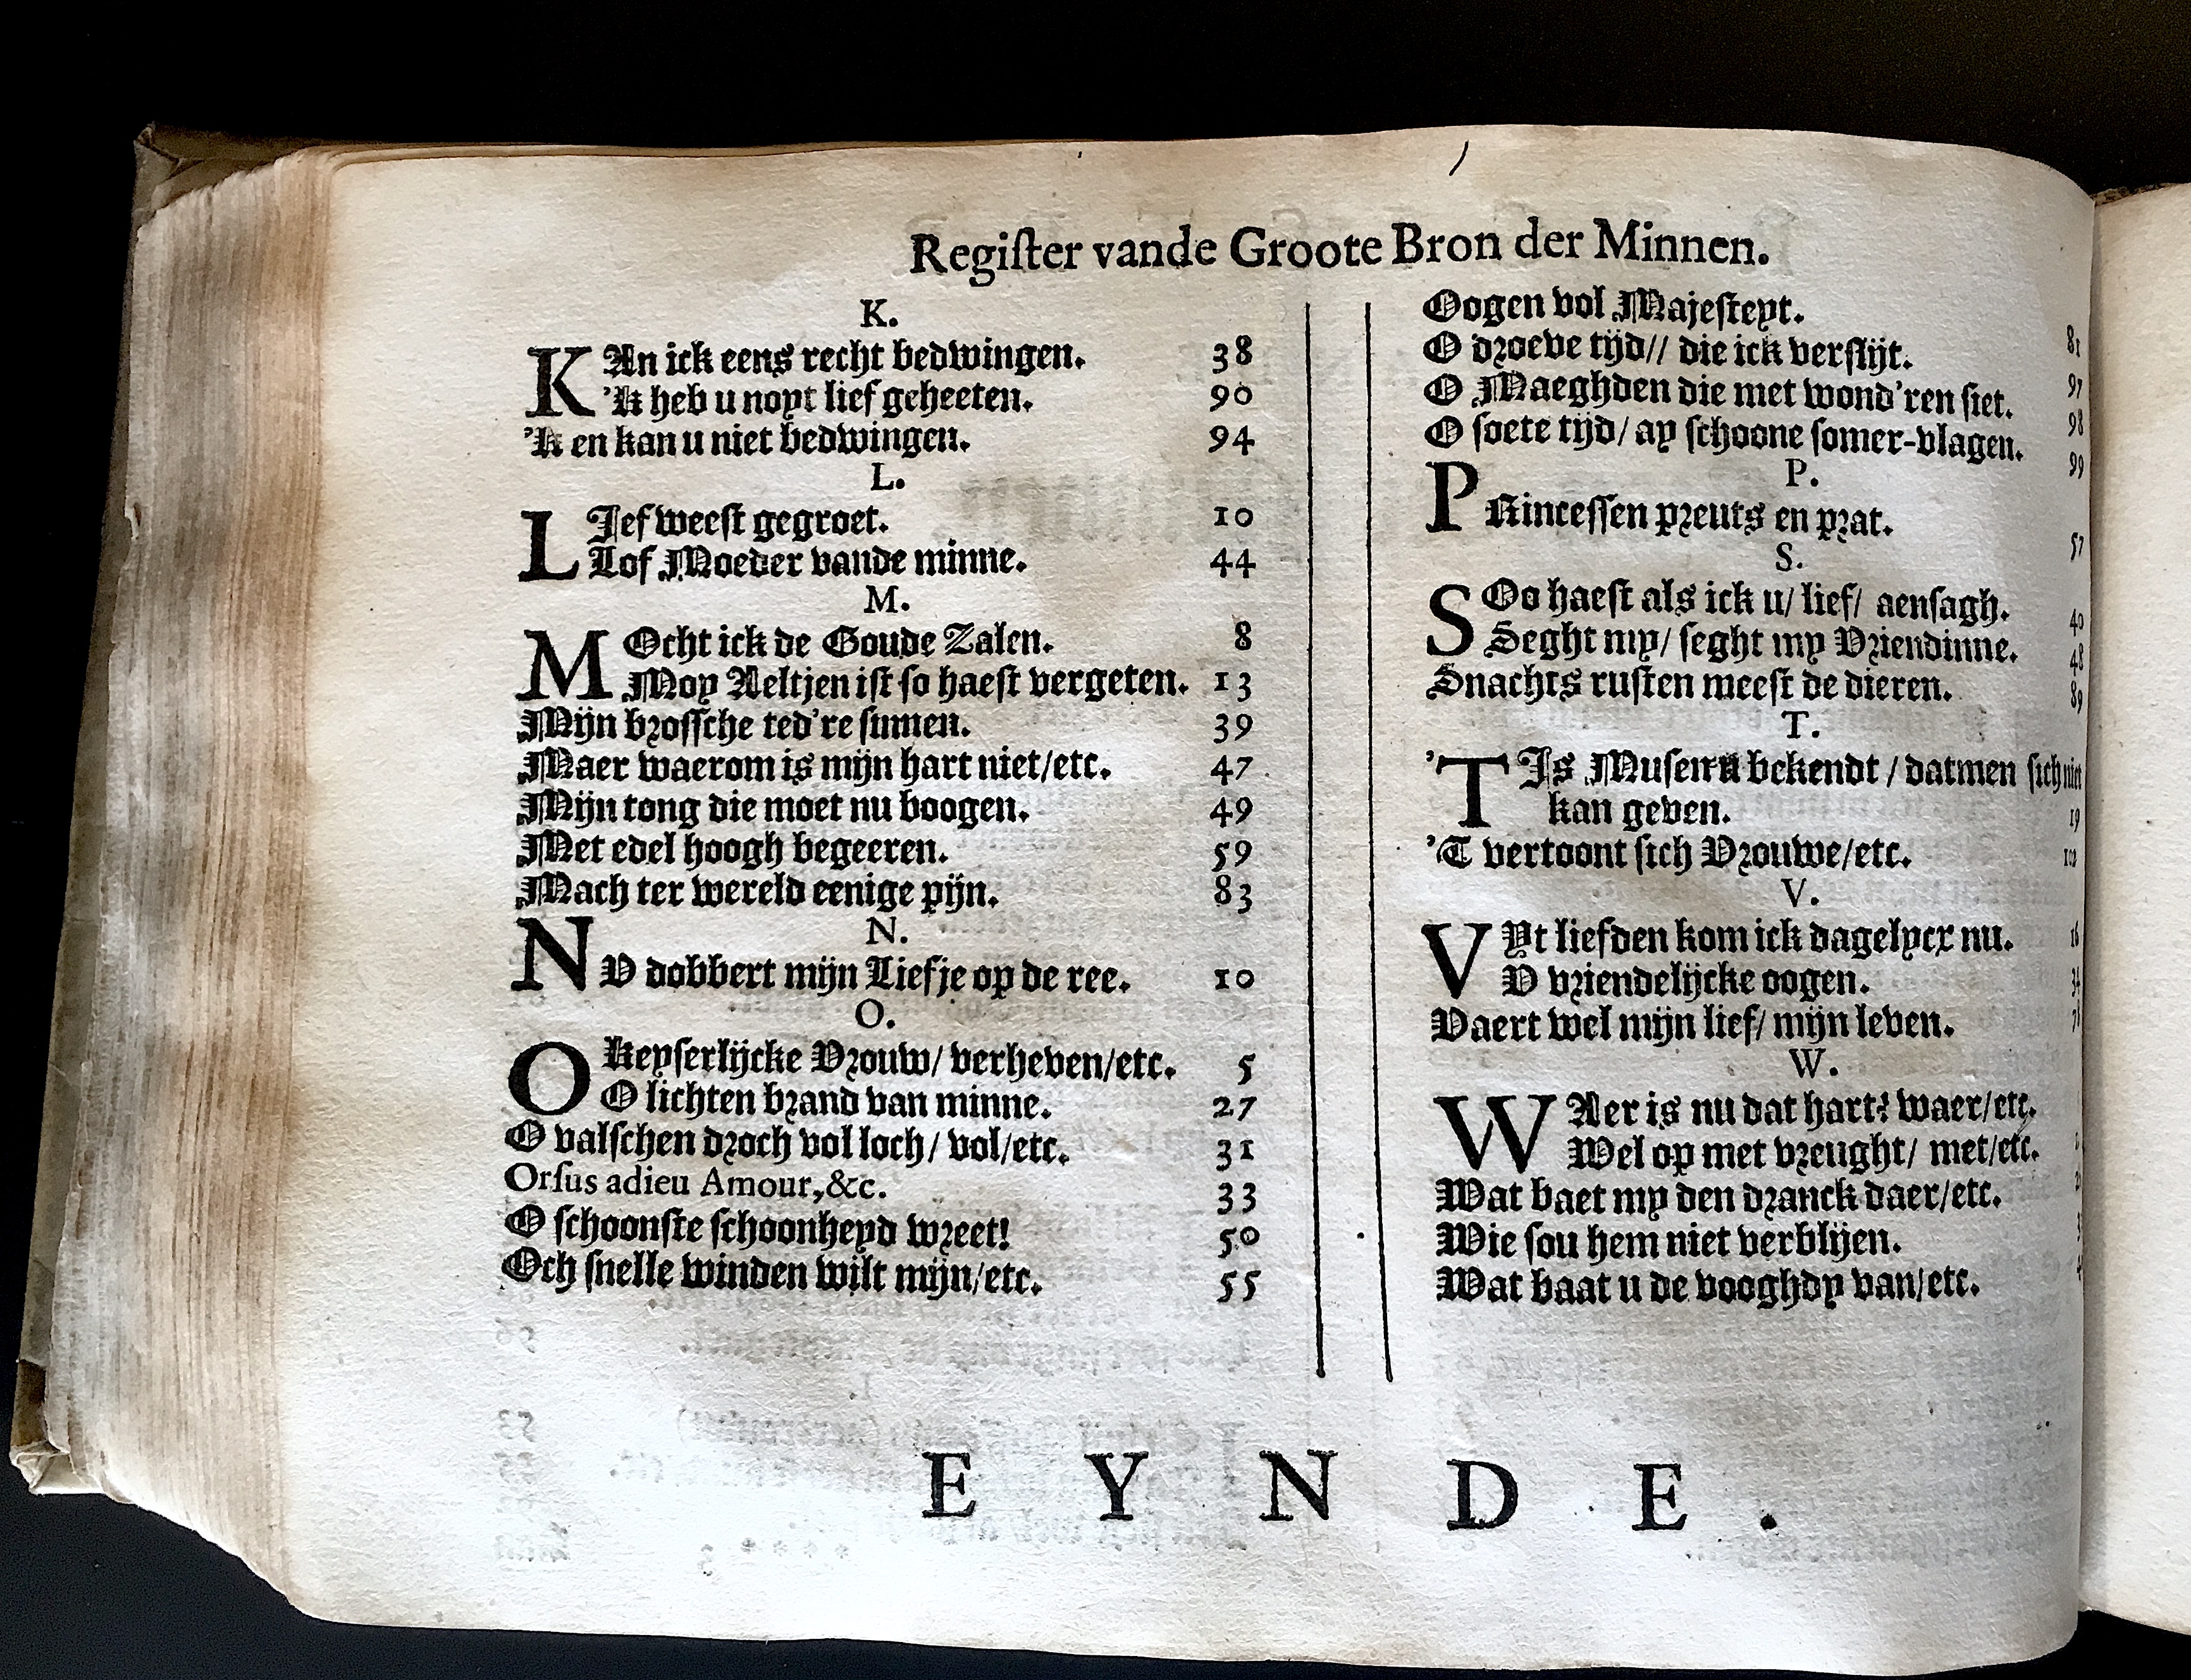 Regiſter vande Groote Bron der Minnen.
K.
KAn ick eens recht bedwingen. 38
'K heb u noyt lief geheeten. 90
'K en kan u niet bedwingen. 94
L.
LIef weeſt gegroet. 10
Lof Moeder vande minne. 44
M.
MOcht ick de Goude Zalen. 8
Moy Aeltjen iſt ſo haeſt vergeten. 13
Mijn broſſche ted're ſinnen. 39
Maer waerom is mijn hart niet/etc. 47
Mijn tong die moet nu boogen. 49
Met edel hoogh begeeren. 59
Mach ter wereld eenige pijn. 83
N.
NV dobbert mijn Liefje op de ree. 10
O.
O Keyſerlijcke Vrouw/ verheven/etc. 5
O lichten brand van minne. 27
O valſchen droch vol loch/ vol/etc. 31
Orſus adieu Amour,&c. 33
O ſchoonſte ſchoonheyd wreet! 50
Och ſnelle winden wilt mijn/etc. 55
Oogen vol Majeſteyt. 81
O droeve tijd// die ick verſlijt. 97
O Maeghden die met wond'ren ſiet. 98
O ſoete tijd/ ay ſchoone ſomer-vlagen. 99
P.
PRinceſſen preuts en prat. 57
S.
SOo haeſt als ick u/ lief/ aenſagh. 40
Seght my/ ſeght my Vriendinne. 48
Snachts ruſten meeſt de dieren. 89
T.
'T Is Muſen bekendt / datmen ſich niet
kan geven. 19
'T vertoont ſich Vrouwe/etc.
V.
VYt liefden kom ick dagelycx nu. 16
V vriendelijcke oogen. 34
Vaert wel mijn lief/ mijn leven.
W.
WAer is nu dat hart? waer/etc.
Wel op met vreught/ met/etc.
Wat baet my den dranck daer/etc.
Wie ſou hem niet verblijen.
Wat baat u de vooghdy van/etc.
E Y N D E .